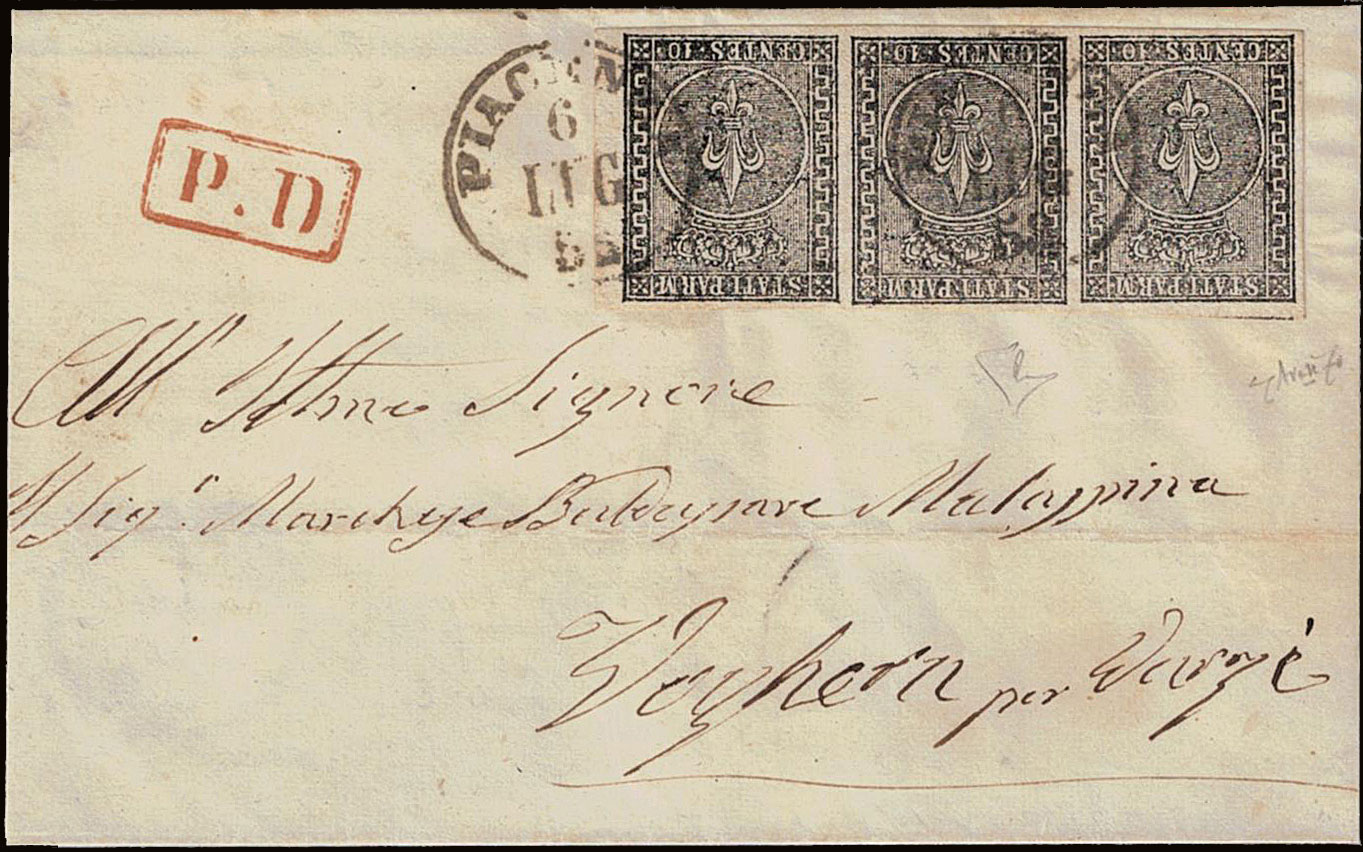 P.D
PIACEN
6
LUG
CENTES 10 CENTES 10 CENTES 10
STATI PARM STATI PARM STATI PARM
All' Illmo Signore
Il Sig.r Marchese Baldassare Malaspina
Voghera per Varzi